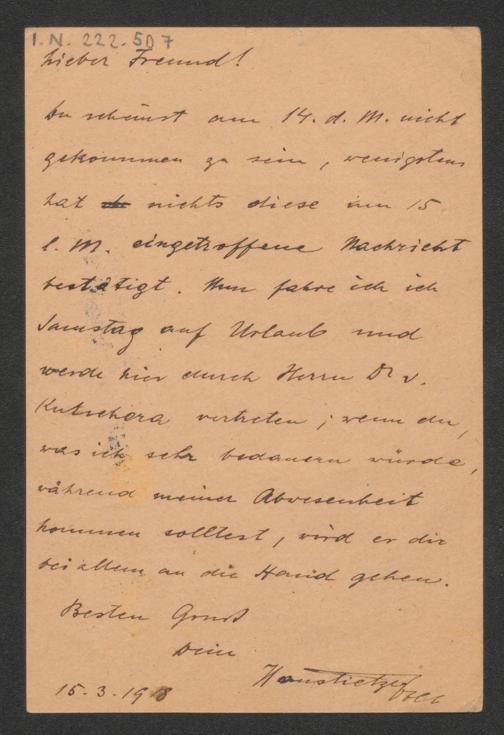 I.N. 222.507
Lieber Freund!
Du scheinst am 14. d. M. nicht
gekommen zu sein, wenigstens
hat nichts diese am 15
l. M. eingetroffene Nachricht
bestätigt. Nun fahre ich ich
Samstag auf Urlaub und
werde hier durch Herrn Dr v.
Kutschera vertreten; wenn du,
was ich sehr bedauern würde,
während meiner Abwesenheit
kommen solltest, wird er dir
bei allem an die Hand gehen.
Besten Gruß
Dein
15.3.1918